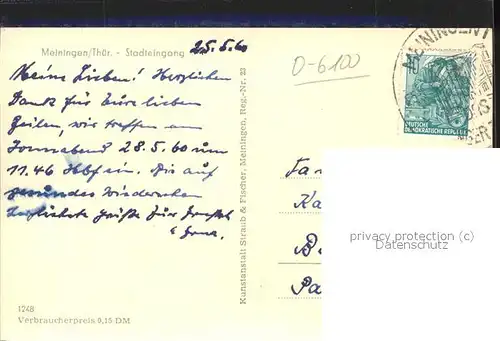 Meiningen/Thür. - Stadteingang
25.5.60
Meine Lieben! Herzlichen
Dank für Eure lieben
Zeilen, wir treffen am
Sonnabend 28.5.60 um
11.46 Hbf ein. Bis auf
gesundes Wiedersehen
herzlichste Grüße Eur
1248
Verbraucherpreis 0,15 DM
Kunstanstalt Straub & Fischer, Meiningen, Reg.-Nr. 23
O-6100
MEININGEN 1
DEUTSCHE
DEMOKRATISCHE REPUBLIK
Fa
Ka
B
Pa
privacy protection (c)
Datenschutz